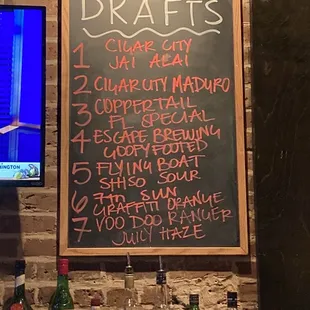 DRAFTS
1 CIGAR CITY
JAI ALAI
2 CIGAR CITY MADURO
3 COPPERTAIL
FL SPECIAL
4 ESCAPE BREWING
GOOFY FOOTED
5 FLYING BOAT
SHISO SOUR
6 7TH SUN
GRAFFITI ORANGE
7 VOO DOO RANGER
JUICY HAZE